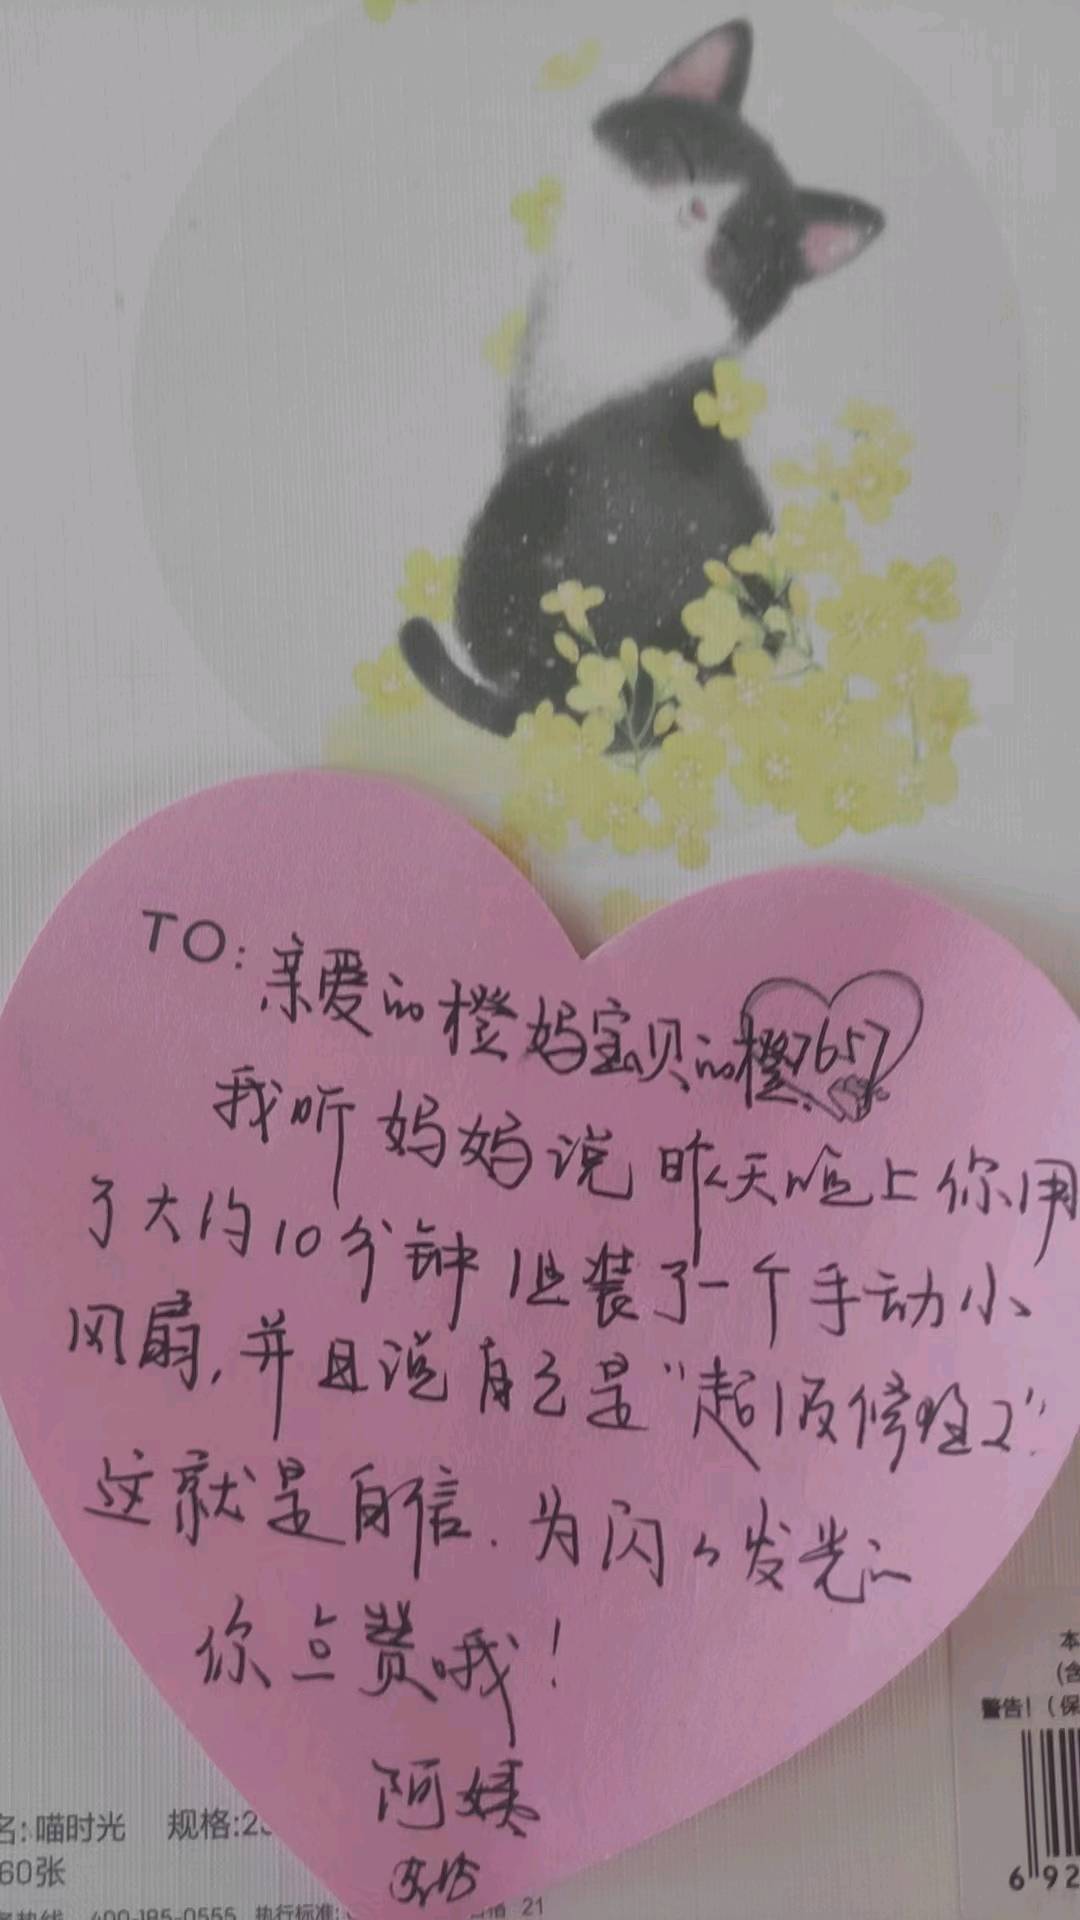 TO: 亲爱的橙妈宝贝的橙7657
我听妈妈说昨天晚上你用
了大约10分钟组装了一个手动小
风扇,并且说自己是“超级修理工”
这就是自信.为闪々发光的
你点赞哦!
阿姨
3.15
本
(含
警告!(保
名:喵时光 规格:23
60张
400-185-0555 执行标准:
21
692